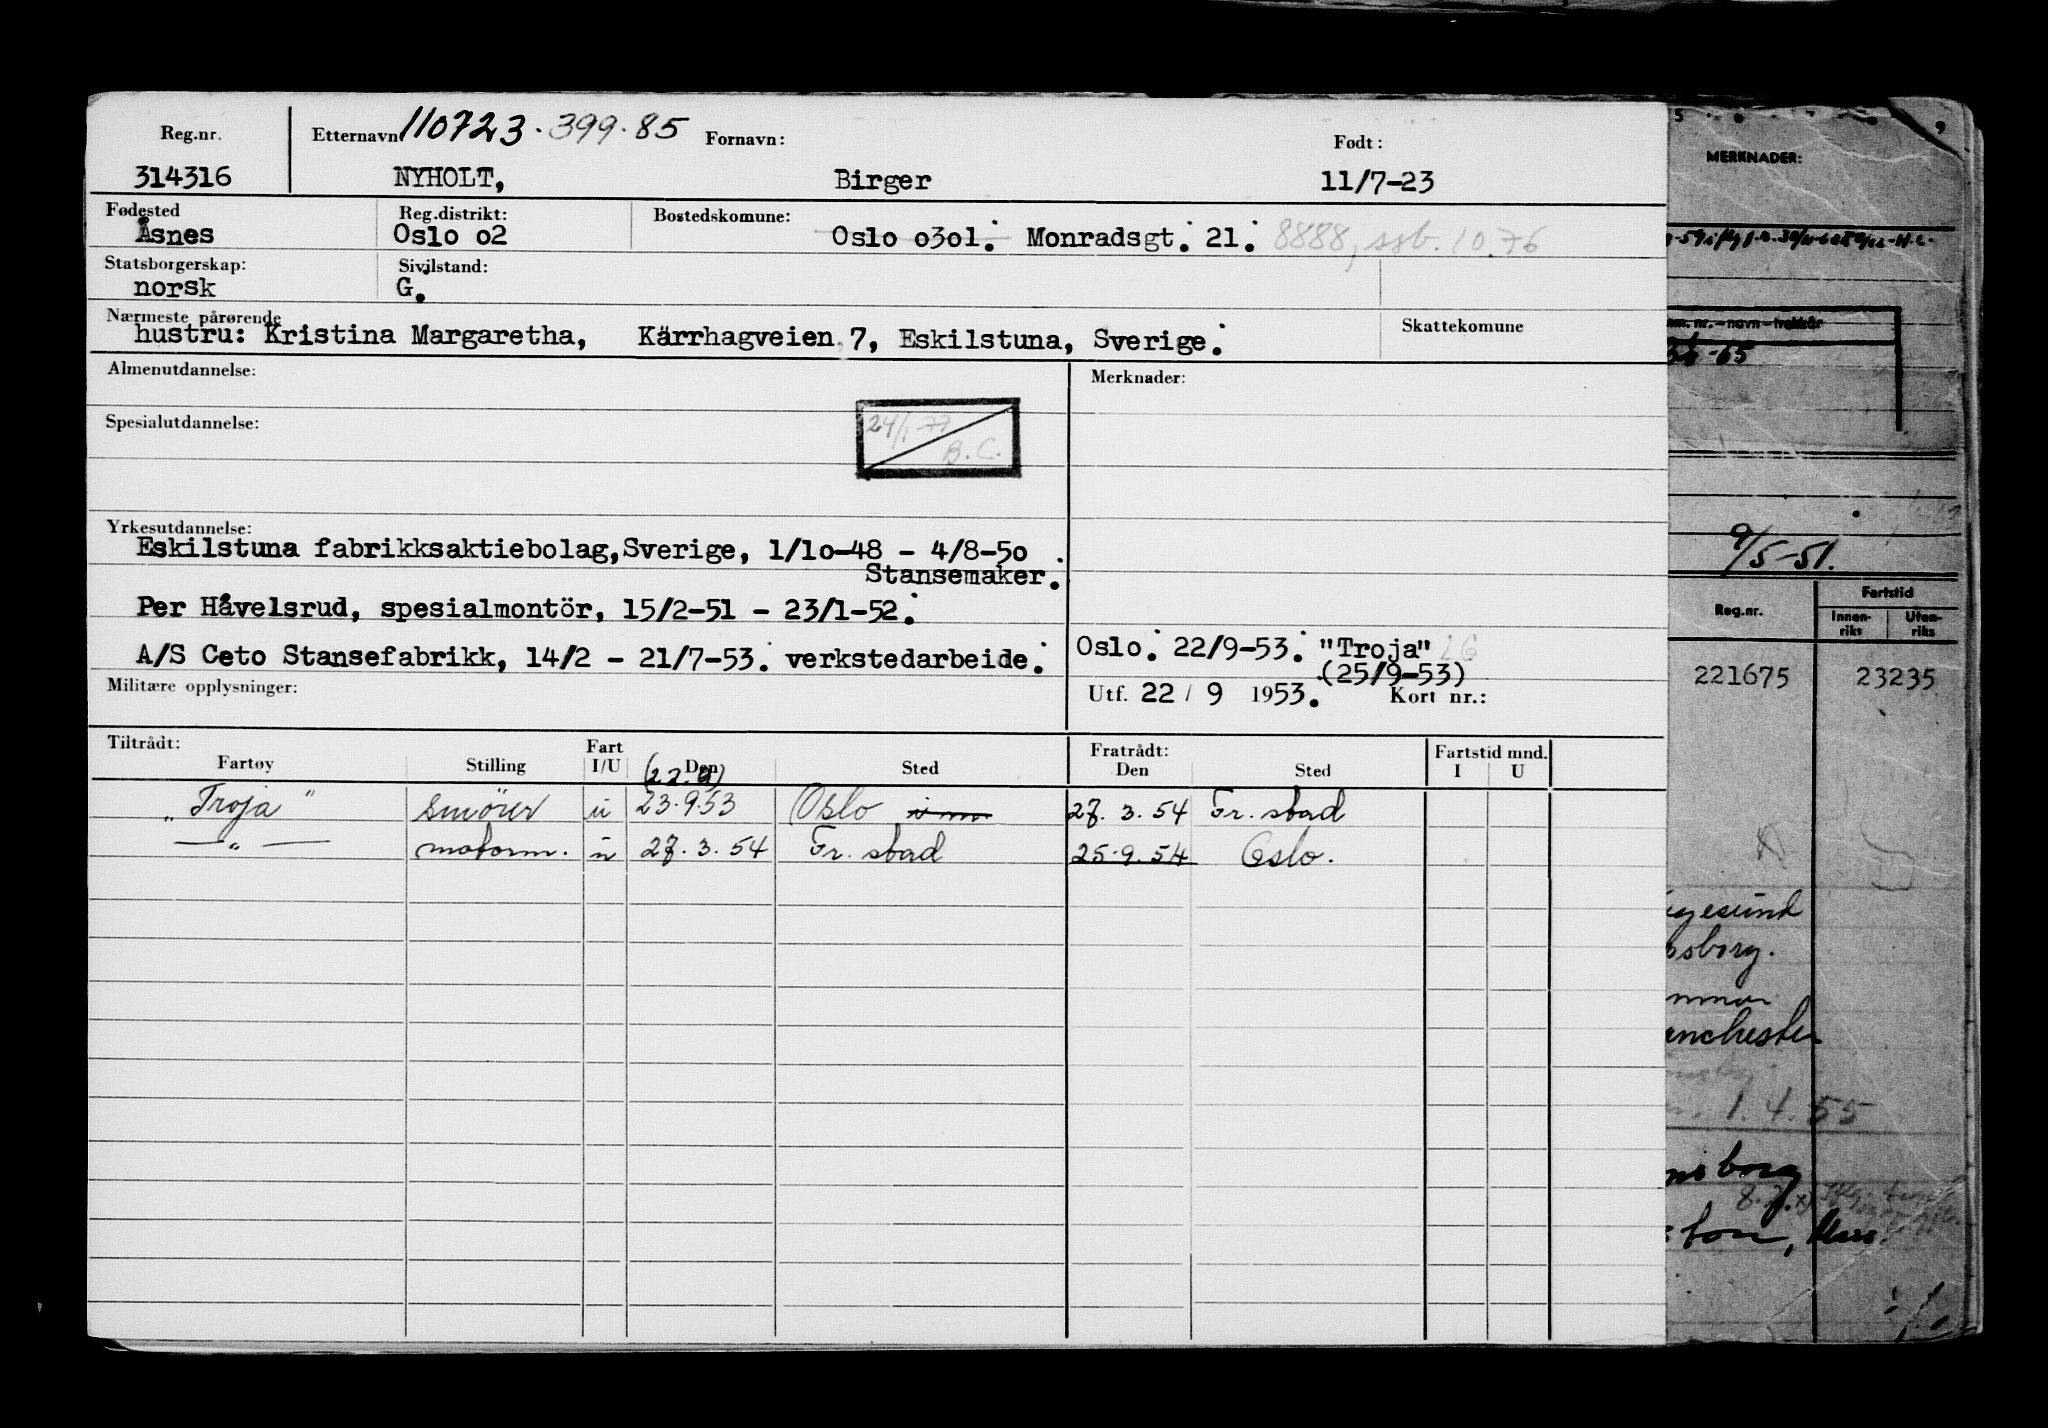 Reg.nr. Etternavn 110723.399.85 Fornavn: Født:
314316 NYHOLT, Birger 11/7-23
Fødested Reg.distrikt: Bostedskomune:
Åsnes Oslo o2 Oslo o3o1. Monradsgt. 21. 8888, ssb. 10.76
Statsborgerskap: Sivilstand:
norsk G.
Nærmeste pårørende Skattekomune
hustru: Kristina Margaretha, Kärrhagveien 7, Eskilstuna, Sverige.
Almenutdannelse: Merknader:
Spesialutdannelse: 24/1 77
B.C.
Yrkesutdannelse:
Eskilstuna fabrikksaktiebolag,Sverige, 1/1o-48 - 4/8-5o .
Stansemaker.
Per Håvelsrud, spesialmontör, 15/2-51 - 23/1-52.
Oslo. 22/9-53. "Troja"
A/S Ceto Stansefabrikk, 14/2 - 21/7-53. verkstedarbeide. (25/9-53)
Militære opplysninger: Utf. 22 / 9 1953. Kort nr.:
Tiltrådt: Fart Fratrådt: Fartstid mnd.
Fartøy Stilling I/U Den Sted Den Sted I U
(22.9)
"Troja" smörer u 23.9.53 Oslo 27.3.54 Fr.stad
— " — motorm. u 27.3.54 Fr.stad 25.9.54 Oslo.
MERKNADER:
-65
9/5-51.
Reg.nr. Fartstid
Innen-riks Uten-riks
221675 23235
1.4.55